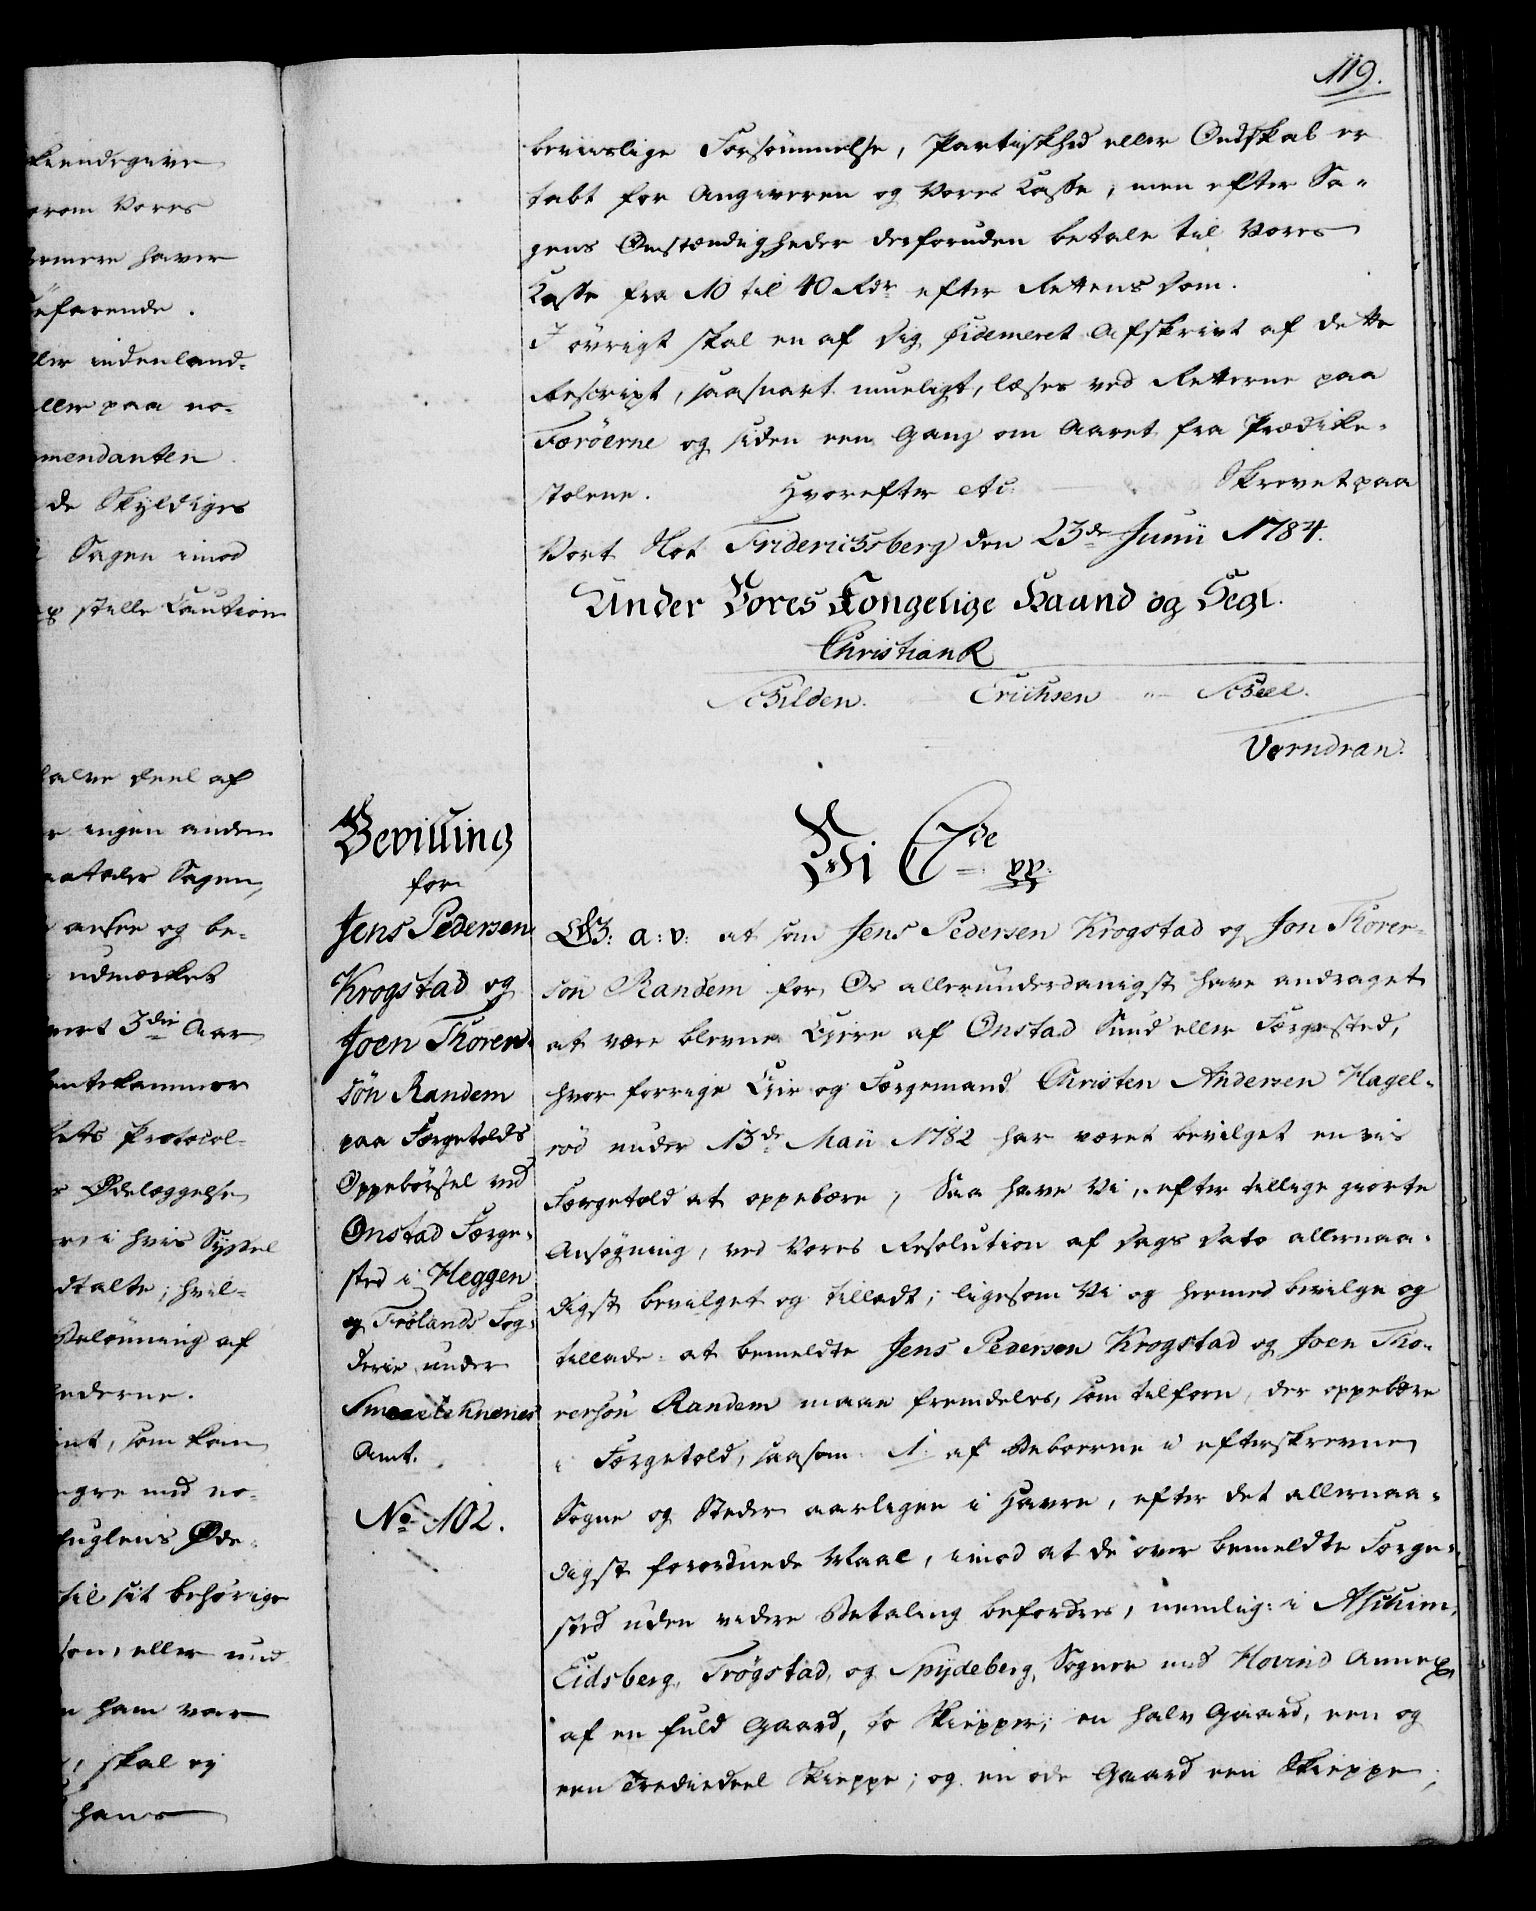 119.
kiendegive
orom Vores
ermere haver
efarende.
ller indenland-
ller paa no-
mendanten
de Skyldiges
Sagen imod
stille Caution
halve Deel af
ingen anden
aataler Sagen,
ansee og be-
udmærket
vert 3die Aar
entekammer
Protocol-
Ødelæggelse
i hvis Syssel
dtalte; hvil-
Belønning af
ederne.
int, som kan
egre med no-
fuglens Øde-
til sit behørige
son, eller med
ham var
, skal ej
hans
beviislige Forsømmelse, Partiskhed eller Ondskab er
tabt for Angiveren og Vores Kasse, men efter Sa-
gens Omstændigheder desforuden betale til Vores
Kasse fra 10 til 40 Rdr efter Rettens Dom.
I øvrigt skal en af Dig videmeret Afskrivt af dette
Rescript, saasnart mueligt, læses ved Retterne paa
Færöerne og siden een Gang om Aaret fra Prædike-
stolene. Hvorefter etc. Skrevet paa
Vort Slot Friderichsberg den 23de Junii 1784.
Under Vores Kongelige Haand og Segl.
Christian R
Schilden. Erichsen Scheel.
Verndran.
Bevilling
for
Jens Pedersen
Krogstad og
Joen Thorer-
sön Randem
paa Færgetolds
Oppebørsel ved
Onstad Færge-
sted i Heggen
og Frølands Fog-
derie under
Smaalehnenes
Amt.
No 102.
Vi C 7de pp.
G: a: v: at som Jens Pedersen Krogstad og Jon Thorer-
sön Randem for Os allerunderdanigst have andraget
at være blevne Eiere af Onstad Sund eller Færgested,
hvor forrige Eier og Færgemand Christen Andersen Hagel-
röd under 13de Maii 1782 har været bevilget en vis
Færgetold at oppebære, Saa have Vi, efter tillige giorte
Ansøgning, ved Vores Resolution af Dags Dato allernaa-
digst bevilget og tilladt; ligesom Vi og hermed bevilge og
tillade: at bemeldte Jens Pedersen Krogstad og Joen Tho-
rersön Randem maae fremdeles, som tilforn, der oppebære
i Færgetold, saasom: 1. af Beboerne i efterskrevne
Sogne og Steder aarligen i Havre, efter det allernaa-
digst forordnede Maal, imod at de over bemeldte Færge-
sted uden videre Betaling befordres, nemlig: i Aschim,
Eidsberg, Trögstad, og Spydeberg, Sogner med Hovind Annex,
af en fuld Gaard, to Skiepper; en halv Gaard, een og
een Trediedeel Skieppe; og en øde Gaard een Skieppe;